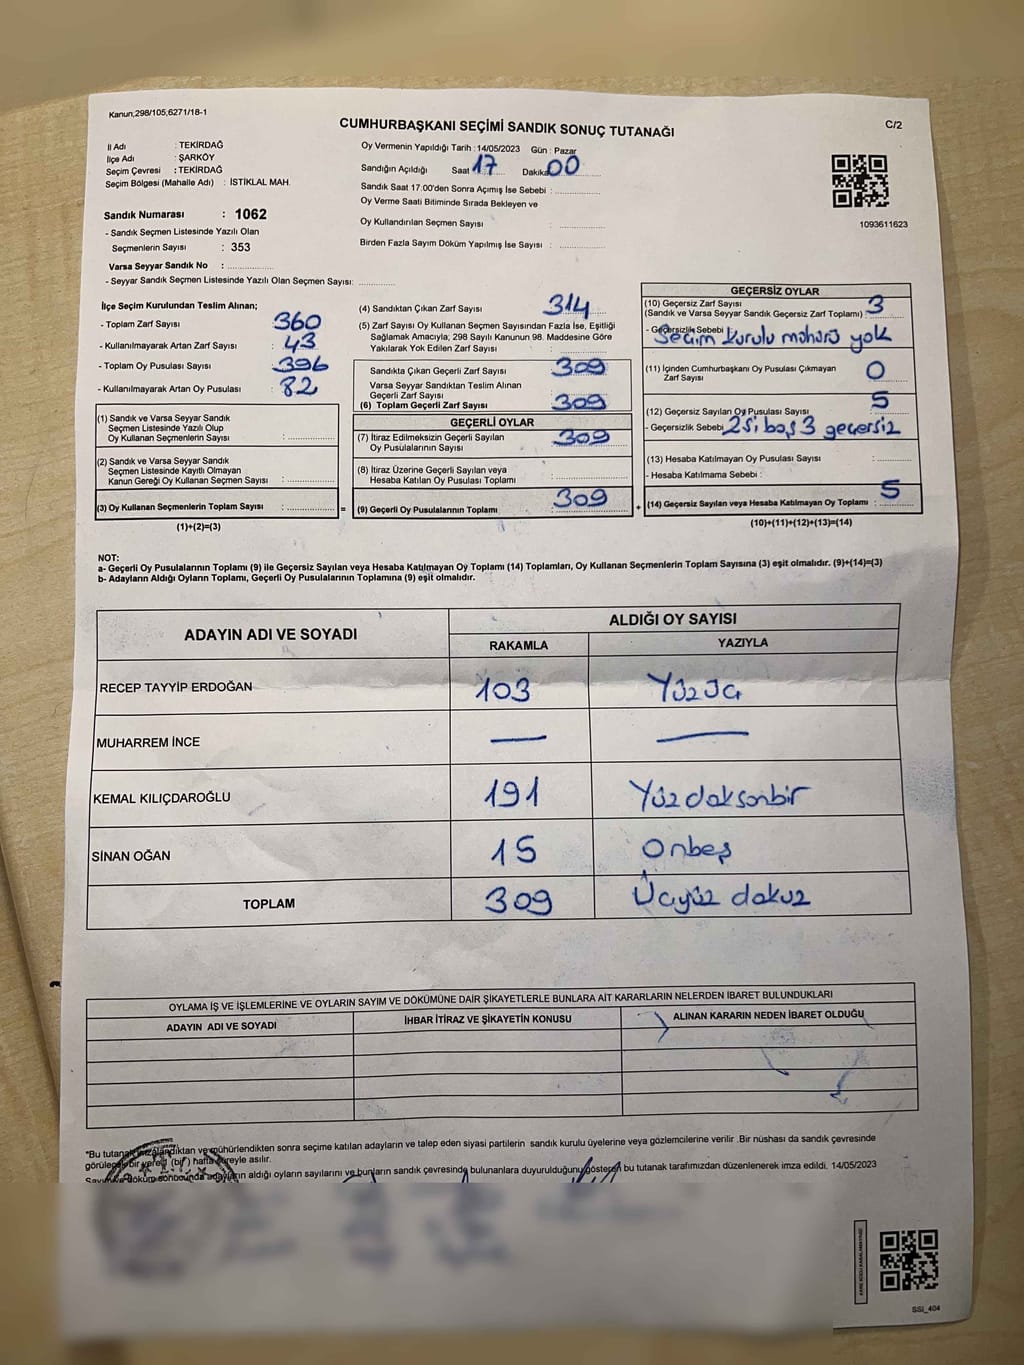 Kanun,298/105,6271/18-1
CUMHURBAŞKANI SEÇİMİ SANDIK SONUÇ TUTANAĞI
C/2
İl Adı : TEKİRDAĞ
İlçe Adı : ŞARKÖY
Seçim Çevresi : TEKİRDAĞ
Seçim Bölgesi (Mahalle Adı) : İSTİKLAL MAH.
Sandık Numarası : 1062
- Sandık Seçmen Listesinde Yazılı Olan
Seçmenlerin Sayısı : 353
Varsa Seyyar Sandık No :
- Seyyar Sandık Seçmen Listesinde Yazılı Olan Seçmen Sayısı:
Oy Vermenin Yapıldığı Tarih : 14/05/2023 Gün : Pazar
Sandığın Açıldığı Saat 17 Dakika 00
Sandık Saat 17.00'den Sonra Açımış İse Sebebi :
Oy Verme Saati Bitiminde Sırada Bekleyen ve
Oy Kullandırılan Seçmen Sayısı :
Birden Fazla Sayım Döküm Yapılmış İse Sayısı :
1093611623
İlçe Seçim Kurulundan Teslim Alınan;
- Toplam Zarf Sayısı : 360
- Kullanılmayarak Artan Zarf Sayısı : 43
- Toplam Oy Pusulası Sayısı : 396
- Kullanılmayarak Artan Oy Pusulası : 82
(1) Sandık ve Varsa Seyyar Sandık
Seçmen Listesinde Yazılı Olup
Oy Kullanan Seçmenlerin Sayısı :
(2) Sandık ve Varsa Seyyar Sandık
Seçmen Listesinde Kayıtlı Olmayan
Kanun Gereği Oy Kullanan Seçmen Sayısı :
(3) Oy Kullanan Seçmenlerin Toplam Sayısı : =
(1)+(2)=(3)
(4) Sandıktan Çıkan Zarf Sayısı 314
(5) Zarf Sayısı Oy Kullanan Seçmen Sayısından Fazla İse, Eşitliği
Sağlamak Amacıyla, 298 Sayılı Kanunun 98. Maddesine Göre
Yakılarak Yok Edilen Zarf Sayısı :
Sandıkta Çıkan Geçerli Zarf Sayısı 309
Varsa Seyyar Sandıktan Teslim Alınan
Geçerli Zarf Sayısı
(6) Toplam Geçerli Zarf Sayısı 309
GEÇERLİ OYLAR
(7) İtiraz Edilmeksizin Geçerli Sayılan
Oy Pusulalarının Sayısı 309
(8) İtiraz Üzerine Geçerli Sayılan veya
Hesaba Katılan Oy Pusulası Toplamı :
(9) Geçerli Oy Pusulalarının Toplamı 309 +
GEÇERSİZ OYLAR
(10) Geçersiz Zarf Sayısı
(Sandık ve Varsa Seyyar Sandık Geçersiz Zarf Toplamı) : 3
- Geçersizlik Sebebi : Seçim Kurulu mührü yok
(11) İçinden Cumhurbaşkanı Oy Pusulası Çıkmayan
Zarf Sayısı 0
(12) Geçersiz Sayılan Oy Pusulası Sayısı : 5
- Geçersizlik Sebebi 2si boş 3 geçersiz
(13) Hesaba Katılmayan Oy Pusulası Sayısı :
- Hesaba Katılmama Sebebi :
(14) Geçersiz Sayılan veya Hesaba Katılmayan Oy Toplamı : 5
(10)+(11)+(12)+(13)=(14)
NOT:
a- Geçerli Oy Pusulalarının Toplamı (9) ile Geçersiz Sayılan veya Hesaba Katılmayan Oy Toplamı (14) Toplamları, Oy Kullanan Seçmenlerin Toplam Sayısına (3) eşit olmalıdır. (9)+(14)=(3)
b- Adayların Aldığı Oyların Toplamı, Geçerli Oy Pusulalarının Toplamına (9) eşit olmalıdır.
ADAYIN ADI VE SOYADI
ALDIĞI OY SAYISI
RAKAMLA YAZIYLA
RECEP TAYYİP ERDOĞAN 103 Yüzüç
MUHARREM İNCE — —
KEMAL KILIÇDAROĞLU 191 Yüzdoksanbir
SİNAN OĞAN 15 Onbeş
TOPLAM 309 Üçyüz dokuz
OYLAMA İŞ VE İŞLEMLERİNE VE OYLARIN SAYIM VE DÖKÜMÜNE DAİR ŞİKAYETLERLE BUNLARA AİT KARARLARIN NELERDEN İBARET BULUNDUKLARI
ADAYIN ADI VE SOYADI İHBAR İTİRAZ VE ŞİKAYETİN KONUSU ALINAN KARARIN NEDEN İBARET OLDUĞU
"Bu tutanak imzalandıktan ve mühürlendikten sonra seçime katılan adayların ve talep eden siyasi partilerin sandık kurulu üyelerine veya gözlemcilerine verilir .Bir nüshası da sandık çevresinde
görülecek bir yere (bir) hafta süreyle asılır.
Sayım ve döküm sonucunda adayların aldığı oyların sayılarını ve bunların sandık çevresinde bulunanlara duyurulduğunu gösteren bu tutanak tarafımızdan düzenlenerek imza edildi. 14/05/2023
SSI_404